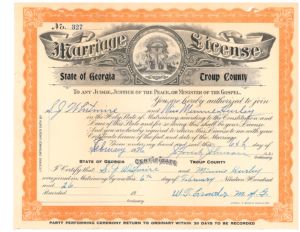 No. 327
Marriage License
State of Georgia Troup County
TO ANY JUDGE, JUSTICE OF THE PEACE, OR MINISTER OF THE GOSPEL.
You are hereby authorized to join
S. J. Whitmire and Miss Minnie
in the Holy State of Matrimony according to the Constitution and
Laws of this State and for so doing this shall be your License.
And you are hereby required to return this License to me with
Given under my hand and seal this 6th day of
February
STATE OF GEORGIA CERTIFICATE TROUP COUNTY
I Certify that S. J. Whitmire and Minnie
were joined in Matrimony by me this 6th day of February Nineteen Hundred
and 26
Recorded
PARTY PERFORMING CEREMONY RETURN TO ORDINARY WITHIN 30 DAYS TO BE RECORDED